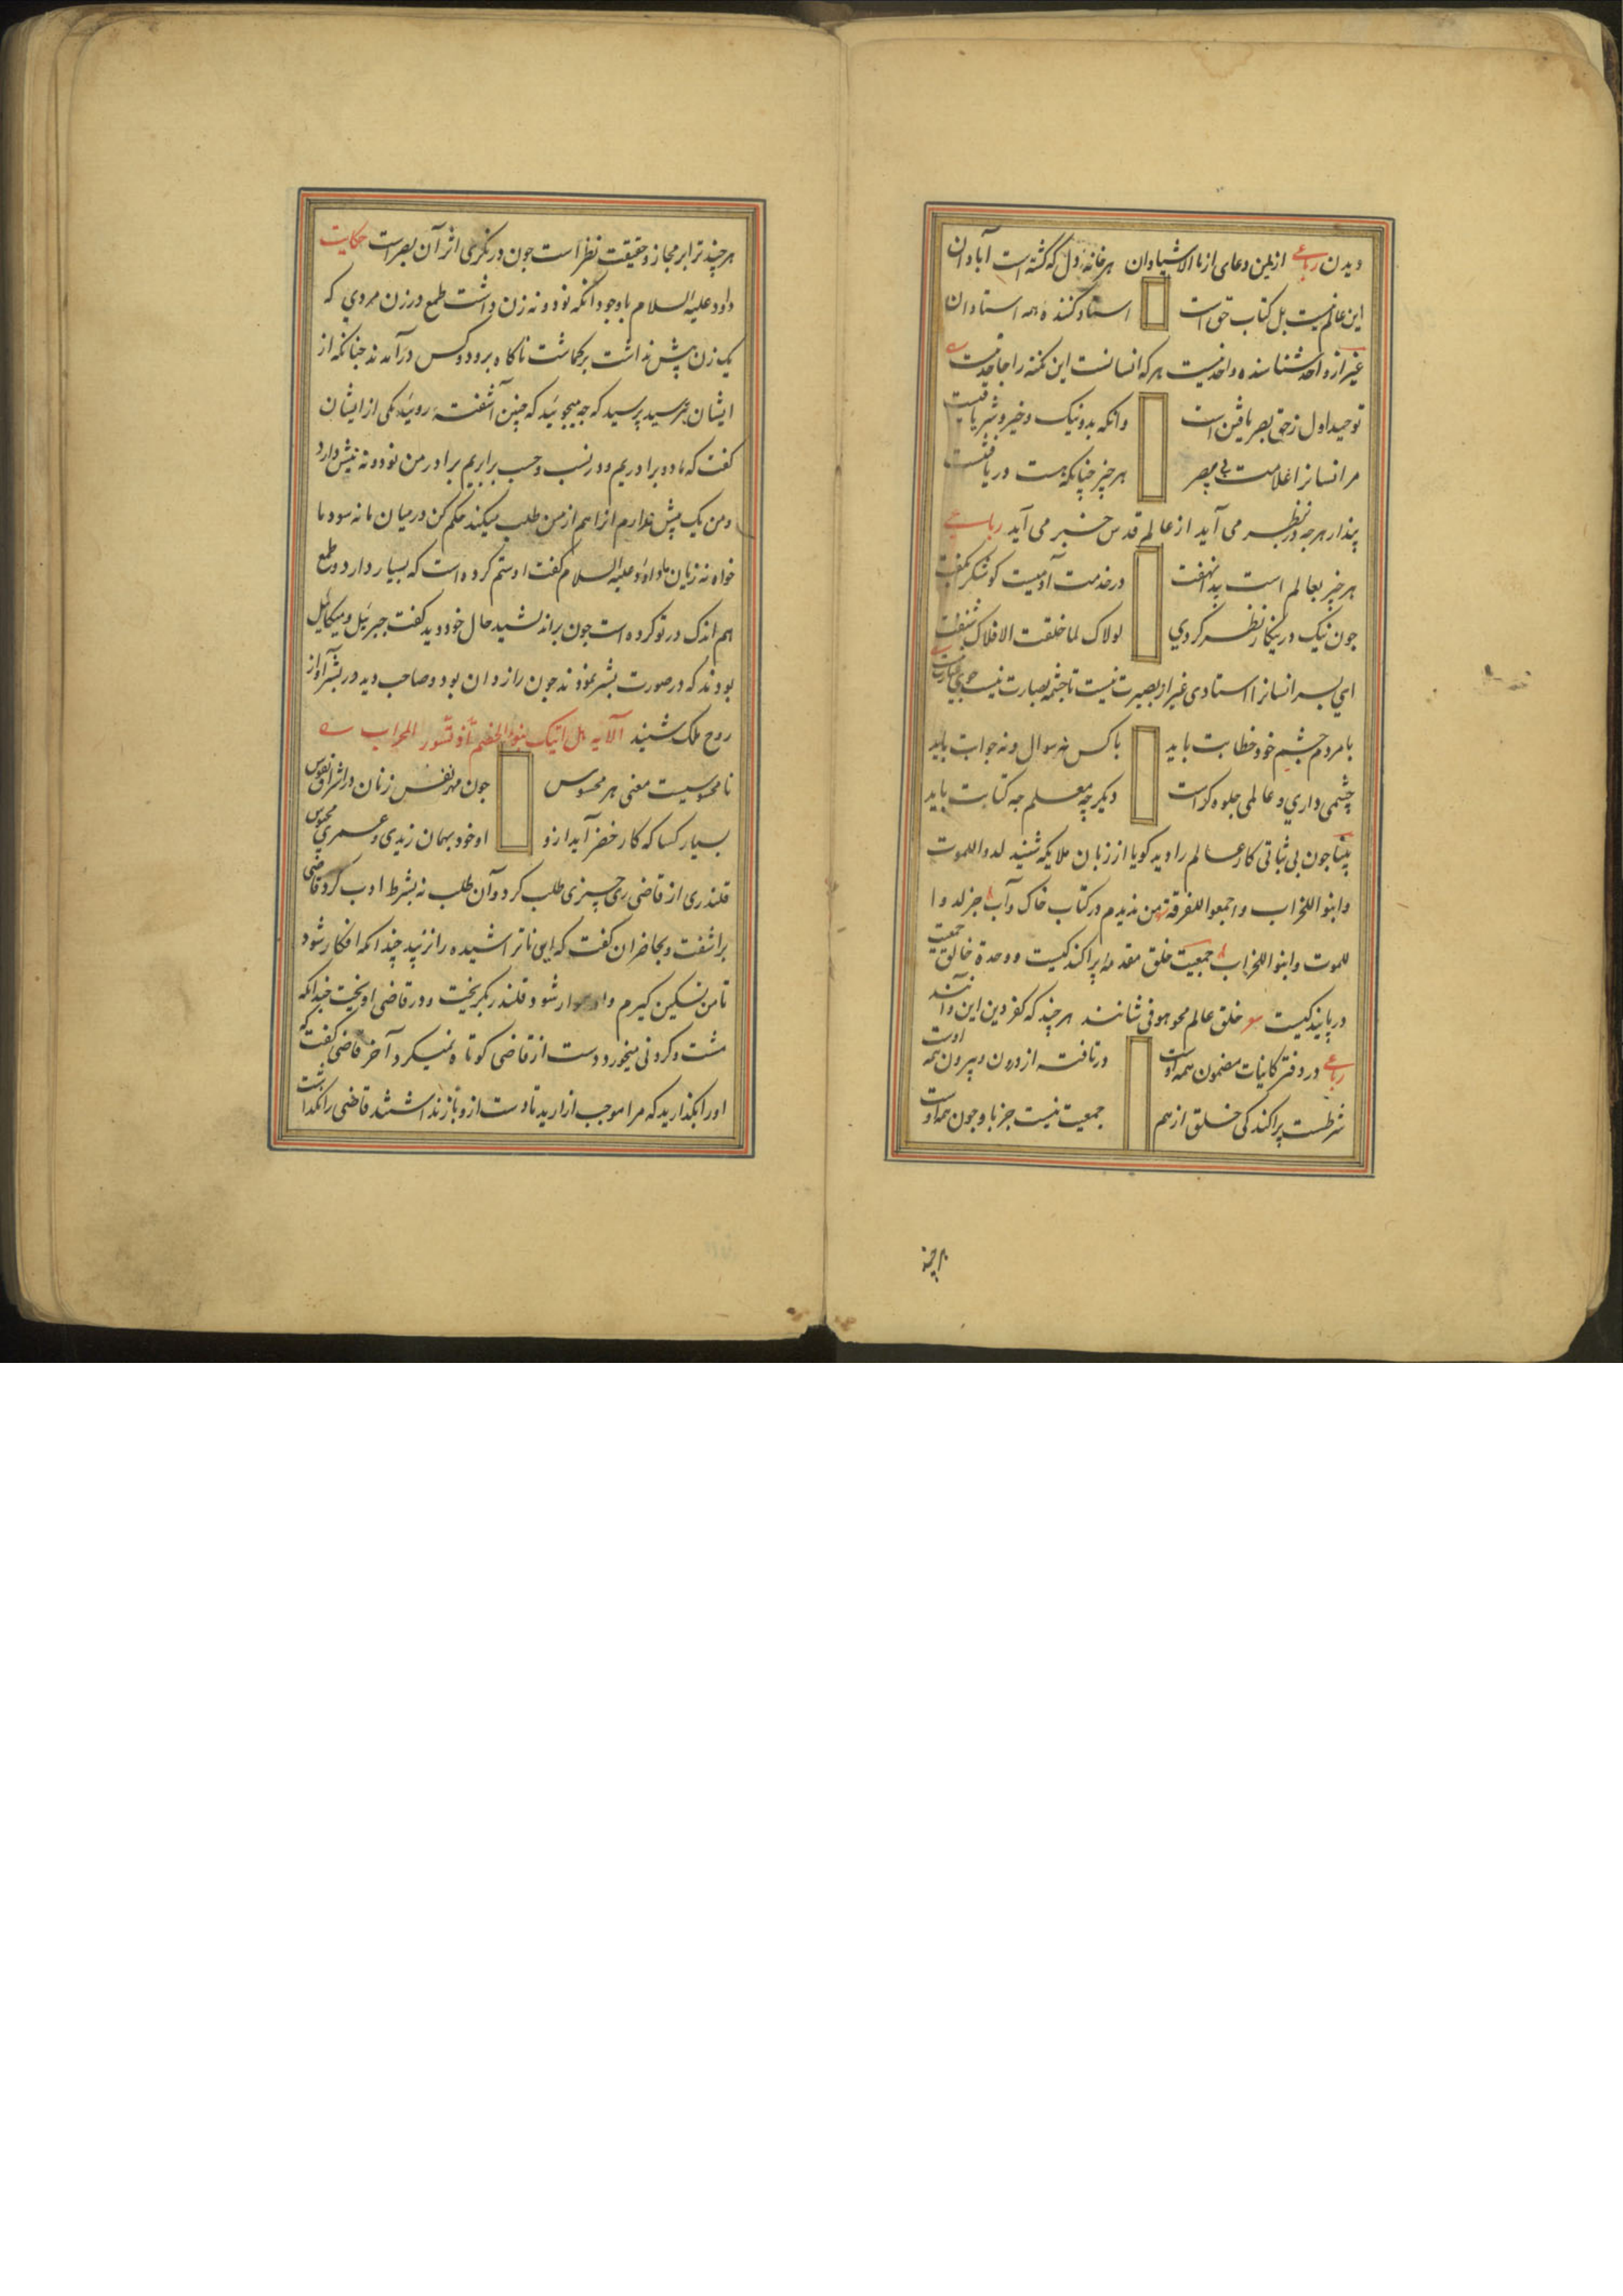 دیدن رباعی ازیمن دعای ارنا الاشیا دان هر خانهٔ دل که گشته است آبادان
این عالم نیست بل کتاب حق است استاد کننده همه استادان
غیر از واحد شناسنده واحد نیست هر که انسانست این نکته را جاحد نیست
توحید اول زحق بصر یافتن است وانکه بد و نیک و خیر و شر یافتنست
مر انسانرا علامت بصر هر چیز چنانکه هست دریافتنست
پندار هرچه در نظر می آید از عالم قدس خبر می آید رباعی
هر چیز بعالم است پیدا نهفت در خدمت آدمیست کو شکر گفت
چون نیک درینکار نظر کردی لولاک لما خلقت الافلاک شنفت
ای پسر انسانرا استادی غیر از بصیرت نیست تا چشم بصارت نیست
با مردم چشم خود خطابت باید با کس نه سوال و نه جوابت باید
چشمی داری و عالمی جلوه کراست دیکر چه معلم چه کتابت باید
بینا چون بی ثباتی کار عالم را دید کویا از زبان ملایکه شنید لدوا للموت
وابنوا للخراب واجمعوا للفرقة من ندیدم در کتاب خاک و آب جز لدوا
للموت وابنوا للخراب جمعیت خلق مقدمه پراکندکیست و وحدة خالق جمعیت
در پایندکیست خلق عالم محو هو فی شانند هر چند که کفر و دین این و آنند
رباعی در دفتر کاینات مضمون همه اوست در تافته از درون و بیرون همه اوست
شرطست پراکندکی خلق از هم جمعیت نیست جز باو چون همه اوست
هر چند
هر چند ترا بر مجاز و حقیقت نظر است چون درنکری اثر آن بصر است حکایت
داود علیه السلام باوجود آنکه نود و نه زن داشت طمع در زن مردی که
یک زن پیش نداشت برکماشت ناکاه برو دو کس درآمدند چنانکه از
ایشان بترسید پرسید که چه میجوئید که چنین آشفته روئید یکی از ایشان
کفت که ما دو برادریم و در نسب و حسب برابریم برادر من نود و نه میش دارد
و من یک پیش ندارم انرا هم از من طلب میکند حکم کن در میان ما نه سود ما
خواه نه زیان ما داود علیه السلام کفت او ستم کرده است که بسیار دارد و طمع
هم اندک در تو کرده است چون براندیشید حال خود دید کفت جبرئیل و میکائیل
بودند که در صورت بشر نمودند چون رازدان بود و صاحب دید در بشر آواز
روح ملک شنید الآیه هل اتیک نبؤ الخصم اذ تسور المحراب
نا محسوسیست معنی هر محسوس چون مهر نفس زنان در اشراق نفوس
بسیار کسا که کار خضر آید ازو او خود بهمان زیدی و عمری محبوس
قلندری از قاضی ری چیزی طلب کرد و آن طلب نه بشرط ادب کرد قاضی
براشفت و بحاضران کفت که این ناتراشیده را نزنید چندانکه افکار شود
تا من تسکین کیرم و او شود قلندر بکریخت و در قاضی اویخت چندانکه
مشت و کردنی میخورد دست از قاضی کوتاه نمیکرد آخر قاضی کفت که
او را بکذارید که مرا موجب ازارید تا دست ازو باز نداشتند قاضی را نکذاشت